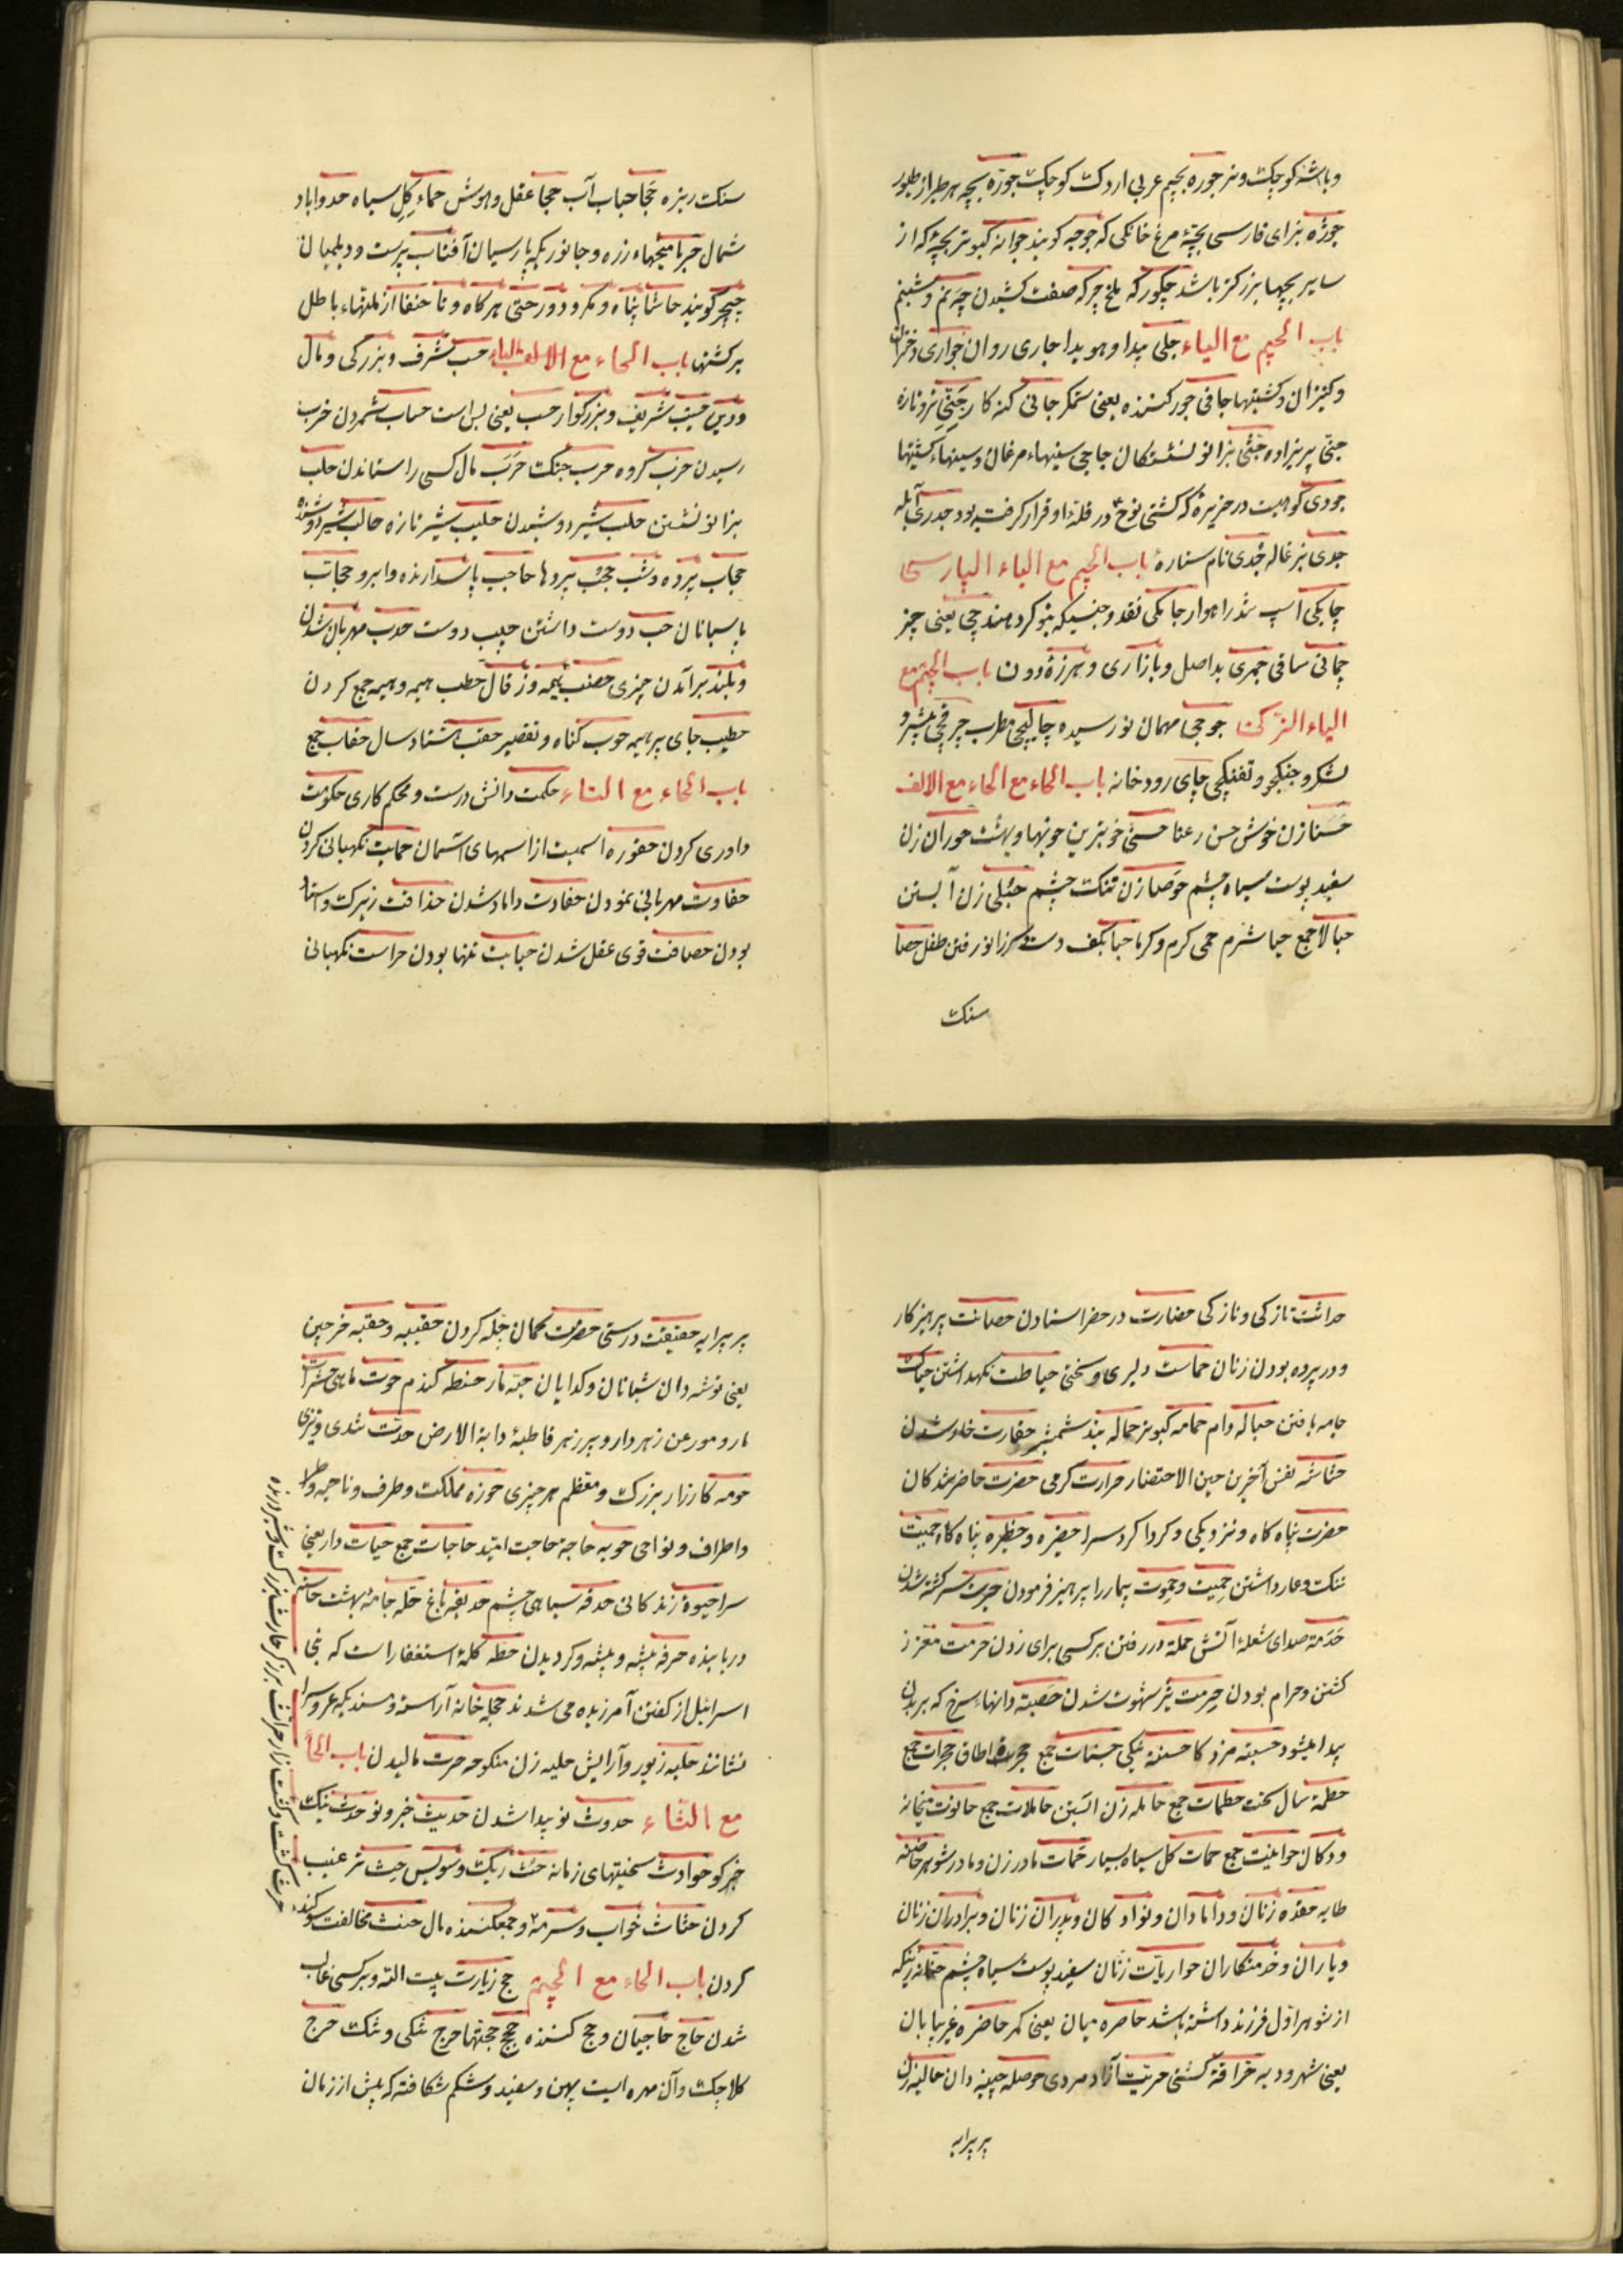 و باشه کوچک و نیز جوره بجیم عربی اردک کوچک جوزه بچه هر طیر از طیور
جوژه بزای فارسی بچهٔ مرغ خانگی که جوجه کویند جوانه کبوتر بچه که از
سایر بچها بزرکتر باشد چکور که بلخ چرکه صفت کشیدن چه نم و شبنم
باب الجیم مع الیاء جلی پیدا و هویدا جاری روان جواری دختران
و کنیزان و کشتیها جافی جور کننده یعنی ستمکر جانی کنه کار جنی تر و تازه
جنی پریزاده جثی بزانو نشستکان جاجی سینهاء مرغان و سینهاء کشتیها
جودی کوهیست در جزیره که کشتی نوح در قلهٔ او قرار کرفته بود جدری آبله
جدی بزغاله جدی نام ستاره باب الجیم مع الیاء الپارسی
چابکی اسپ تند راهوار جامکی نقد و جنسیکه بنوکر دهند چی یعنی چیز
چمانی ساقی جمری بداصل و بازاری و هرزه و دون باب الجیم مع
الیاء الترکی جوجی مهمان نو رسیده چالیجی مطرب چرخچی پیشرو
لشکر و جنکجو و تفنکچی چای رودخانه باب الحاء مع الحاء مع الالف
حسنا زن خوش حسن رعنا حسنی خوبترین خوبیها و بهشت حوران زن
سفید پوست سیاه چشم حوصا زن تنک چشم حبلی زن آبستن
حبالا جمع حیا شرم حمی کرم و کرما حبا بکف دست و سر زانو رفتن طفل حصا
سنک
سنک ریزه حجا حباب آب حجا عقل و هوش حماء کل سیاه حدوا باد
شمال حربا میخهاء زره و جانوریکه پارسیان آفتاب پرست و دیلمیان
چیچر کویند حاشا پناه و مکر و دور حتی هرکاه و تا حنفا از ملتهاء باطل
برکشتها باب الحاء مع الالف بالباء حسب شرف و بزرکی و مال
و دین حسیب شریف و بزرکوار حسب یعنی بس است حساب شمردن حزب
رسیدن حزب کروه حرب جنک حرب مال کسی را ستاندن حلب
بزانو نشستن حلب شیر دوشیدن حلیب شیر تازه حالب شیر دوشنده
حجاب پرده و شب حجب پردها حاجب پاسدارنده و ابرو حجاب
پاسبانان حب دوست داشتن حبیب دوست حدب مهربان شدن
و بلند برآمدن چیزی حصب هیمه و زفال حطب هیمه و هیمه جمع کردن
حطیب جای پر هیمه حوب کناه و تقصیر حقب هشتاد سال حقاب جمع
باب الحاء مع التاء حکمت دانش درست و محکم کاری حکومت
داوری کردن حفوره اسمیست از اسمهای آسمان حمایت نکهبانی کردن
حفاوت مهربانی نمودن حفادت داماد شدن حذاقت زیرک و استاد
بودن حصافت قوی عقل شدن حبابت تنها بودن حراست نکهبانی
حداثت تازکی و نازکی حضارت در حضر استادن حصانت پرهیزکار
و در پرده بودن زنان حماست دلیری و سختی حیاطت نکهداشتن حیاکت
جامه بافتن حباله دام حمامه کبوتر حماله بند شمشیر حقارت خار شدن
حشاشه نفس آخرین حین الاحتضار حرارت کرمی حضرت حاضر شدکان
حضرت پناه کاه و نزدیکی و کرداکرد سرا حضیره و حظیره پناه کاه حمیت
ننک و عار داشتن حمیت و حموت بیمار را پرهیز فرمودن حیرت سرکشته شدن
حدمة صدای شعلهٔ آتش حملة در رفتن بر کسی برای زدن حرمت معزز
کشتن و حرام بودن حرمت پر شهوت شدن حصبة دانهاء سرخ که بر بدن
پیدا میشود حسبة مزد کا حسنة نیکی حسنات جمع حجره اطاق حجرات جمع
حطمة سال سخت حطمات جمع حامله زن آبستن حاملات جمع حانوت میخانه
و دکان حوانیت جمع حمات کل سیاه بسیار حمات مادر زن و مادر شوهر حاضنه
طایه حفده زنان و دامادان و نوادکان و پدران زنان و برادران زنان
و یاران و خدمتکاران حواریات زنان سفید پوست سیاه چشم حنانه زنیکه
از شوهر اول فرزند داشته باشد حاصره میان یعنی کمر حاضره غیر بیابان
یعنی شهر و دیه حراقة کشتی حریت آزاد مردی حوصله چینه دان حالیه زن
پر پیرایه
پر پیرایه حقیقت درستی حضرت کمان چله کردن حقیبه و حقبه خرجین
یعنی توشه دان شبانان و کدایان حیه مار حنطه کندم حوت ماهی حشرات
مار و مور عن زهردار و بی زهر قاطبهٔ دابة الارض حدت تندی و تیزی
حومه کارزار بزرک و معظم هر چیزی حوزه مملکت و طرف و ناحیه
و اطراف و نواحی حوبه حاجه حاجت امید حاجات جمع حیات دار یعنی
سرا حیوة زندکانی حدقه سیاهی چشم حدیقه باغ حله جامهٔ بهشت حاسه
دریابنده حرفه پیشه و پیشه و کردیدن حطه کلمهٔ استغفار است که بنی
اسرائیل از کفتن آمرزیده می شدند حجله خانه آراسته و مسندیکه عروس را
نشانند حلیه زیور و آرایش حلیه زن منکوحه حرت مالیدن باب الحاء
مع الثاء حدوث نو پیدا شدن حدیث خبر و نو حدث نیک
خبر کو حوادث سختیهای زمانه حث ریک و سویس حث ترغیب
کردن حثاث خواب و سرمه و جمعکننده مال حنث مخالفت سوکند
کردن باب الحاء مع الجیم حج زیارت بیت الله و بر کسی غالب
شدن حاج حاجیان و حج کننده حجج حجتها حرج تنکی و تنک حرج
کلاجک و آن مهره ایست پهن و سفید و شکم شکافته که پیش از زمان
حرث کشت و کشت زار حراث برزکر حارث بزرک و شیر درنده